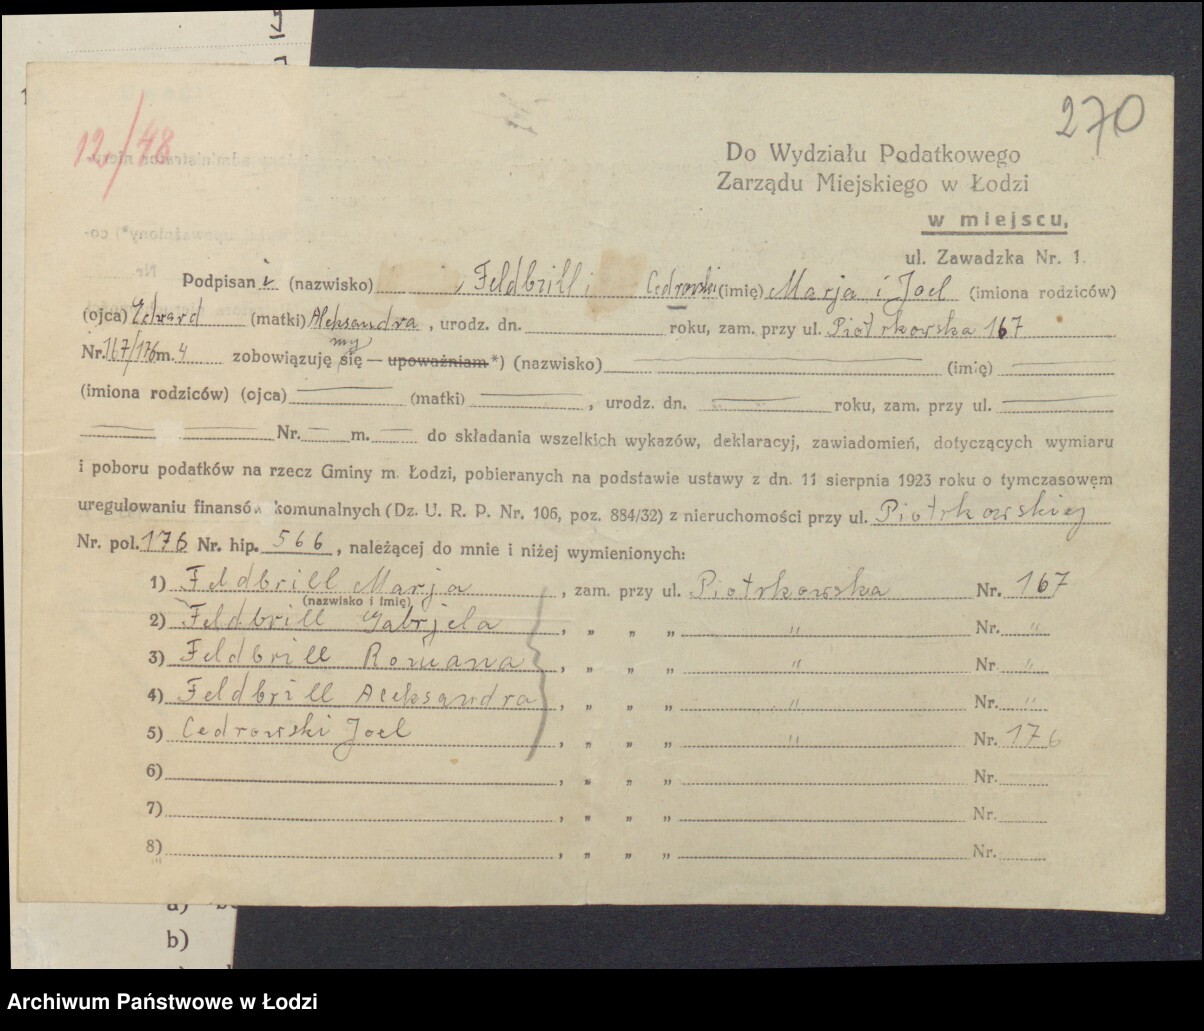 12/48
270
Do Wydziału Podatkowego
Zarządu Miejskiego w Łodzi
w miejscu,
ul. Zawadzka Nr. 1.
Podpisani (nazwisko) Feldbrill i Cedrowski (imię) Marja i Joel (imiona rodziców)
(ojca) Edward (matki) Aleksandra, urodz. dn. roku, zam. przy ul. Piotrkowska 167
my
Nr. 167/176 m. 4 zobowiązuję się — upoważniam *) (nazwisko) (imię)
(imiona rodziców) (ojca) (matki) , urodz. dn. roku, zam. przy ul.
Nr. m. do składania wszelkich wykazów, deklaracyj, zawiadomień, dotyczących wymiaru
i poboru podatków na rzecz Gminy m. Łodzi, pobieranych na podstawie ustawy z dn. 11 sierpnia 1923 roku o tymczasowem
uregulowaniu finansów komunalnych (Dz. U. R. P. Nr. 106, poz. 884/32) z nieruchomości przy ul. Piotrkowskiej
Nr. pol. 176 Nr. hip. 566, należącej do mnie i niżej wymienionych:
1) Feldbrill Marja , zam. przy ul. Piotrkowska Nr. 167
(nazwisko i imię)
2) Feldbrill Gabrjela , „ „ „ " Nr. "
3) Feldbrill Romana , „ „ „ " Nr. "
4) Feldbrill Aleksandra , „ „ „ " Nr. "
5) Cedrowski Joel , „ „ „ " Nr. 176
6) , „ „ „ Nr.
7) , „ „ „ Nr.
8) , „ „ „ Nr.
a)
b)
Archiwum Państwowe w Łodzi